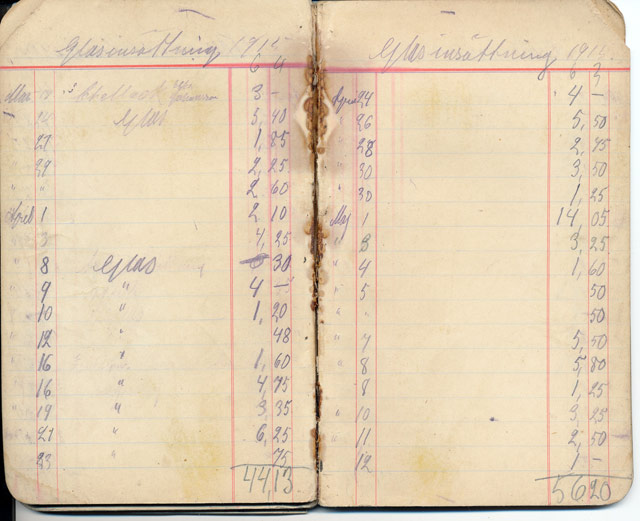 Glasinsättning 191
Mar 3 -
Glas 5, 40
27 1, 85
29 2, 25
" " 2, 60
April 1 2 10
3 4, 25
8 Glas 30
9 " 4 -
10 " 1, 20
12 " 48
16 " 1, 60
16 " 4, 75
19 " 3, 35
21 " 6, 25
23 " 75
44,13
Glasinsättning 191
April 24 4 -
" 26 5, 50
" 28 2, 75
" 30 3, 50
" 30 1, 25
Maj 1 14 05
" 3 3, 25
" 4 1, 60
" 5 50
" 50
" 7 5, 50
" 8 5, 80
8 1, 25
" 10 3, 25
" 11 2, 50
12 1 -
5620